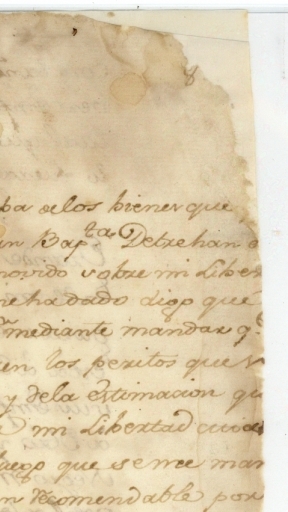 ba de los bienes que
n Bap.ta Detrehan d
movido sobre mi Liber
me ha dado digo que
mediante mandar q.e
en los peritos que
y de la estimacion qu
mi Libertad
luego que se me man
n recomendable por